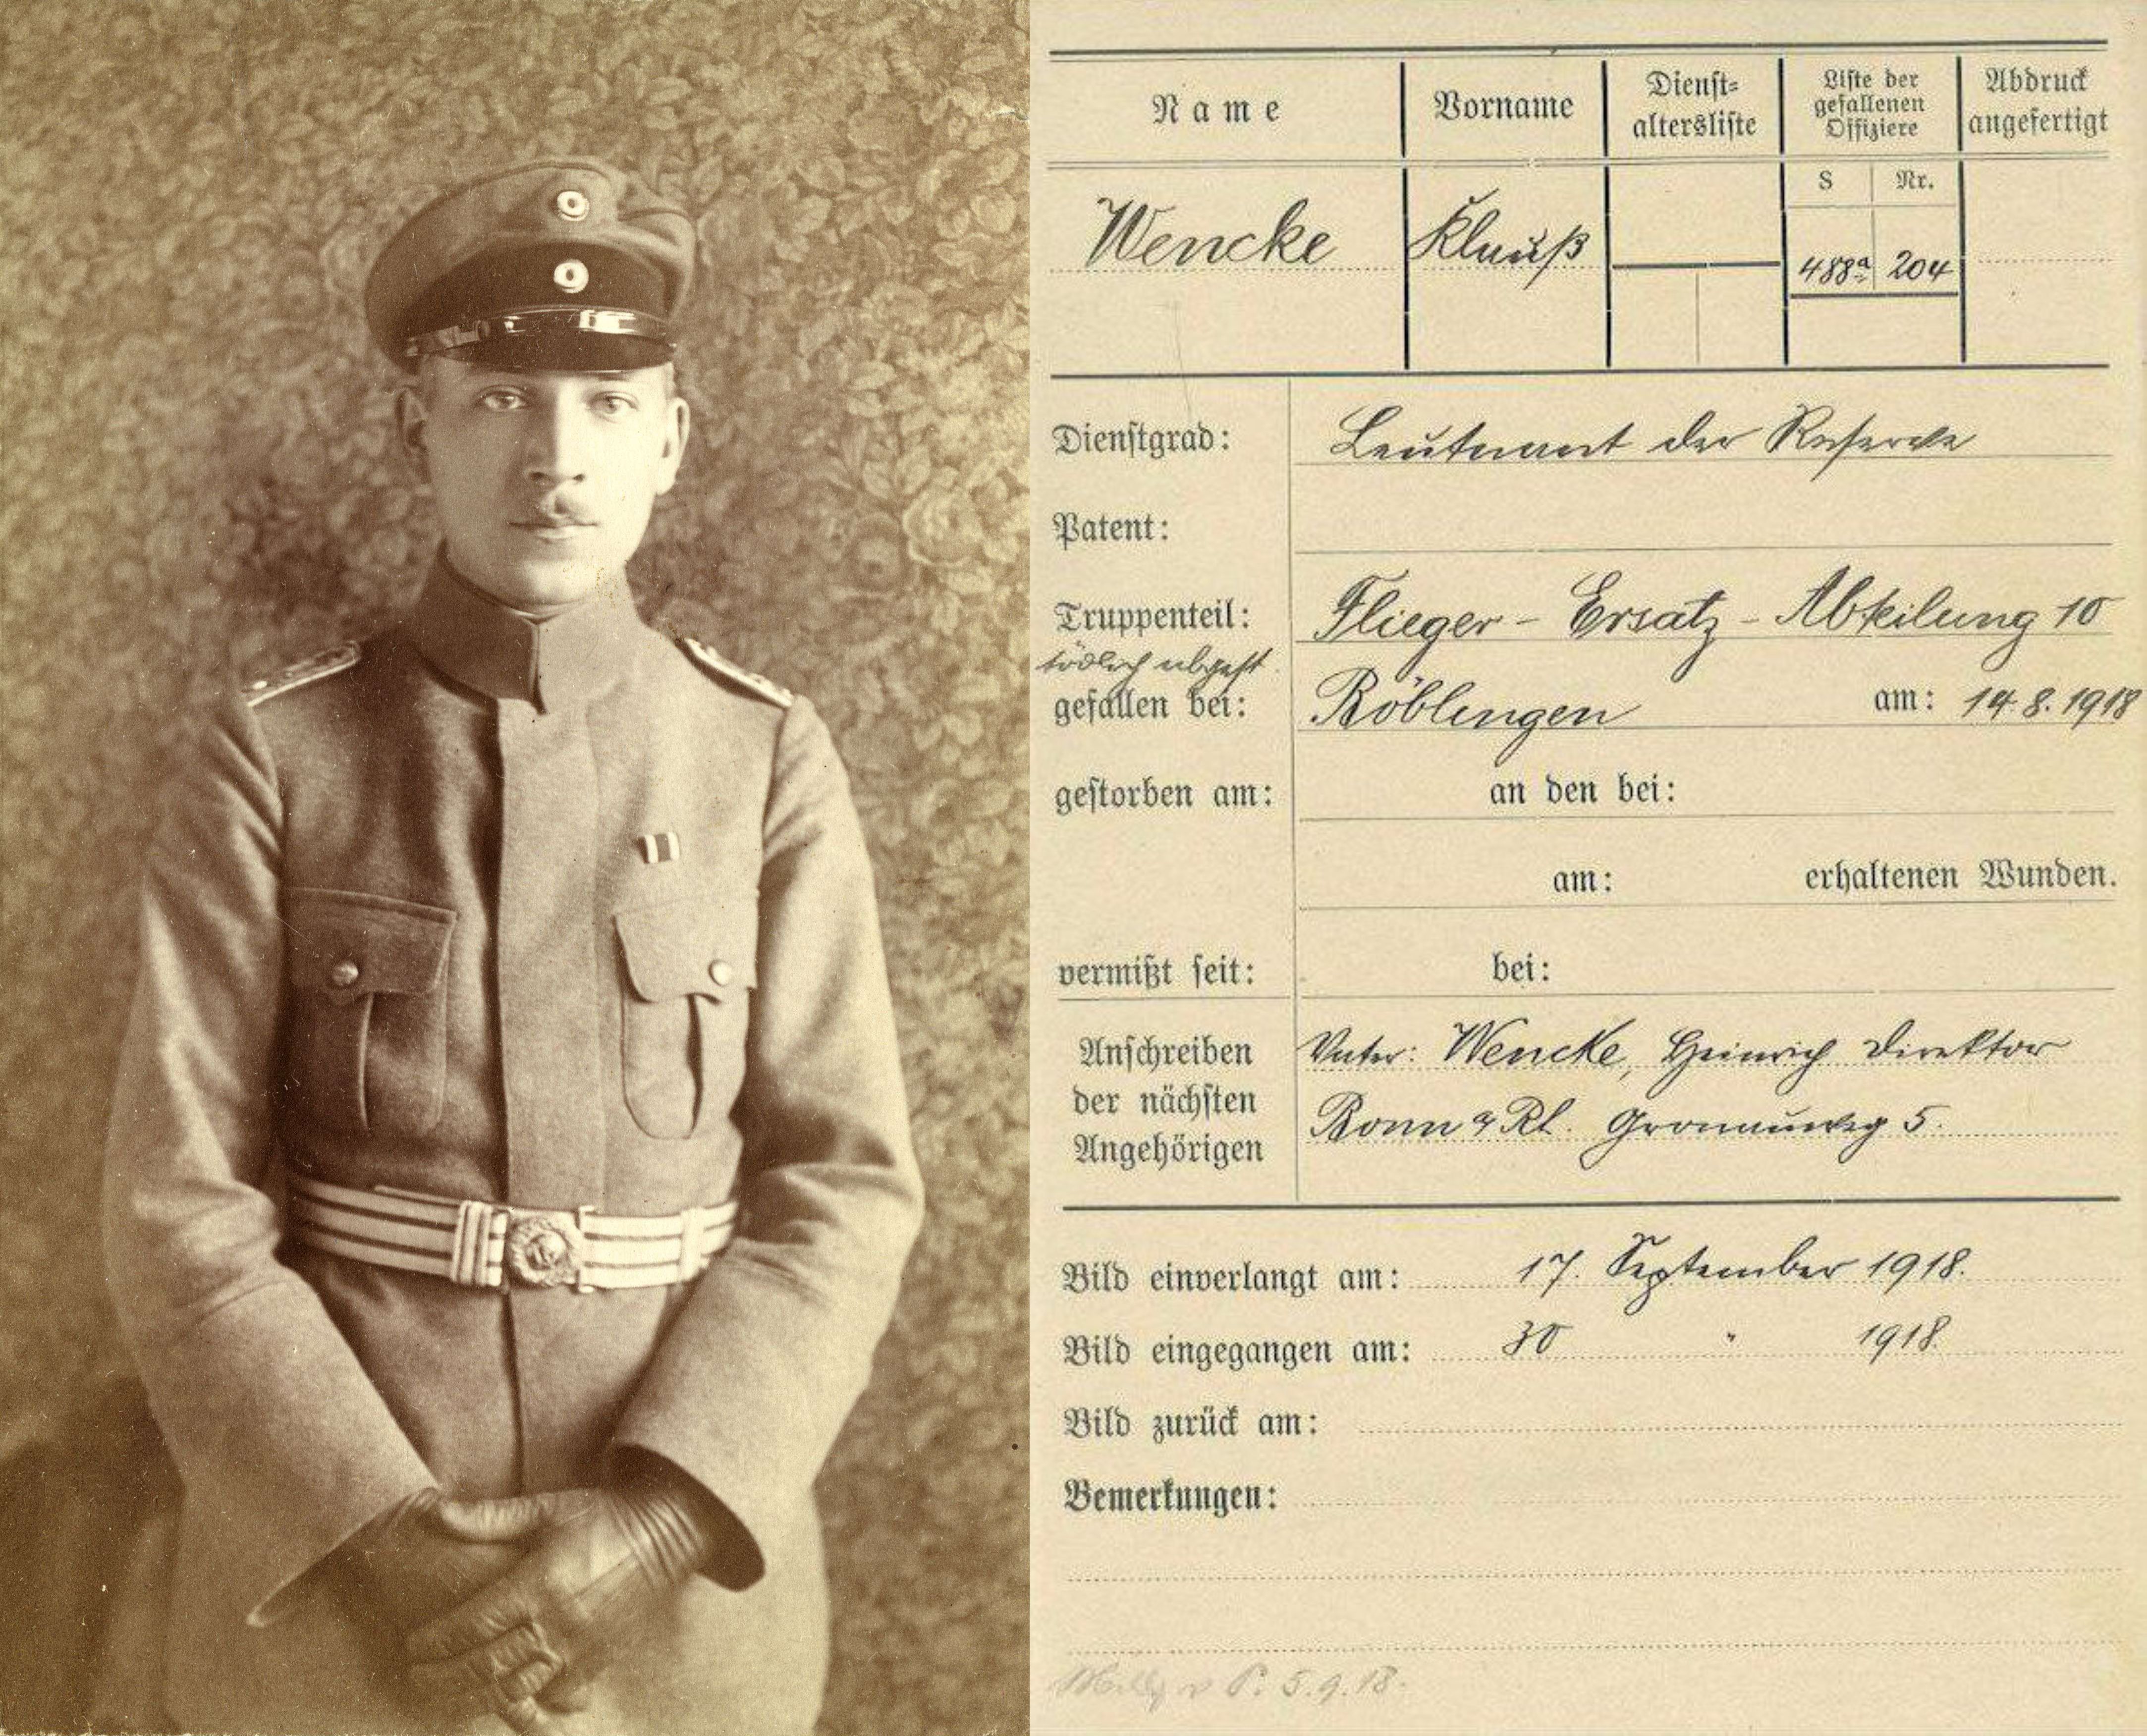 Name Vorname Dienst-altersliste Liste der gefallenen Offiziere Abdruck angefertigt
S Nr.
Wencke Klauß 488a 204
Dienstgrad: Leutnant der Reserve
Patent:
Truppenteil: Flieger-Ersatz-Abteilung 10
tödlich abgest.
gefallen bei: Böblingen am: 14.8.1918
gestorben am: an den bei:
am: erhaltenen Wunden.
vermißt seit: bei:
Anschreiben Vater: Wencke, Heinrich Direktor
der nächsten
Angehörigen Bonn a Rh. Gronauweg 5.
Bild einverlangt am: 17. September 1918.
Bild eingegangen am: 30 " 1918.
Bild zurück am:
Bemerkungen:
5.9.18.